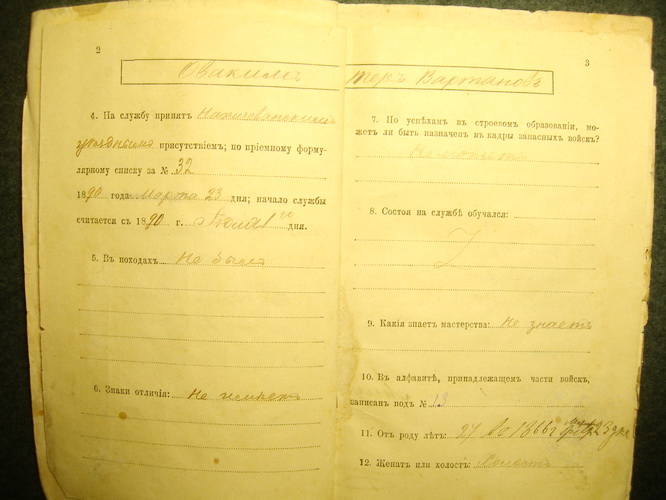 2
Овакимъ
4. На службу принятъ Нахичеванскимъ
уѣзднымъ присутствіемъ; по пріемному форму-
лярному списку за № 32
1890 года Марта 23 дня; начало службы
считается съ 1890 г. дня.
5. Въ походахъ Не былъ
6. Знаки отличія: Не имѣетъ
3
теръ Вартановъ
7. По успѣхамъ въ строевомъ образованіи, мо-
жетъ ли быть назначенъ въ кадры запасныхъ войскъ?
Не можетъ
8. Состоя на службѣ обучался:
9. Какія знаетъ мастерства: Не знаетъ
10. Въ алфавитѣ, принадлежащемъ части войскъ,
записанъ подъ № 13
11. Отъ роду лѣтъ: 1866 г 3 дня
12. Женатъ или холостъ: Холостъ